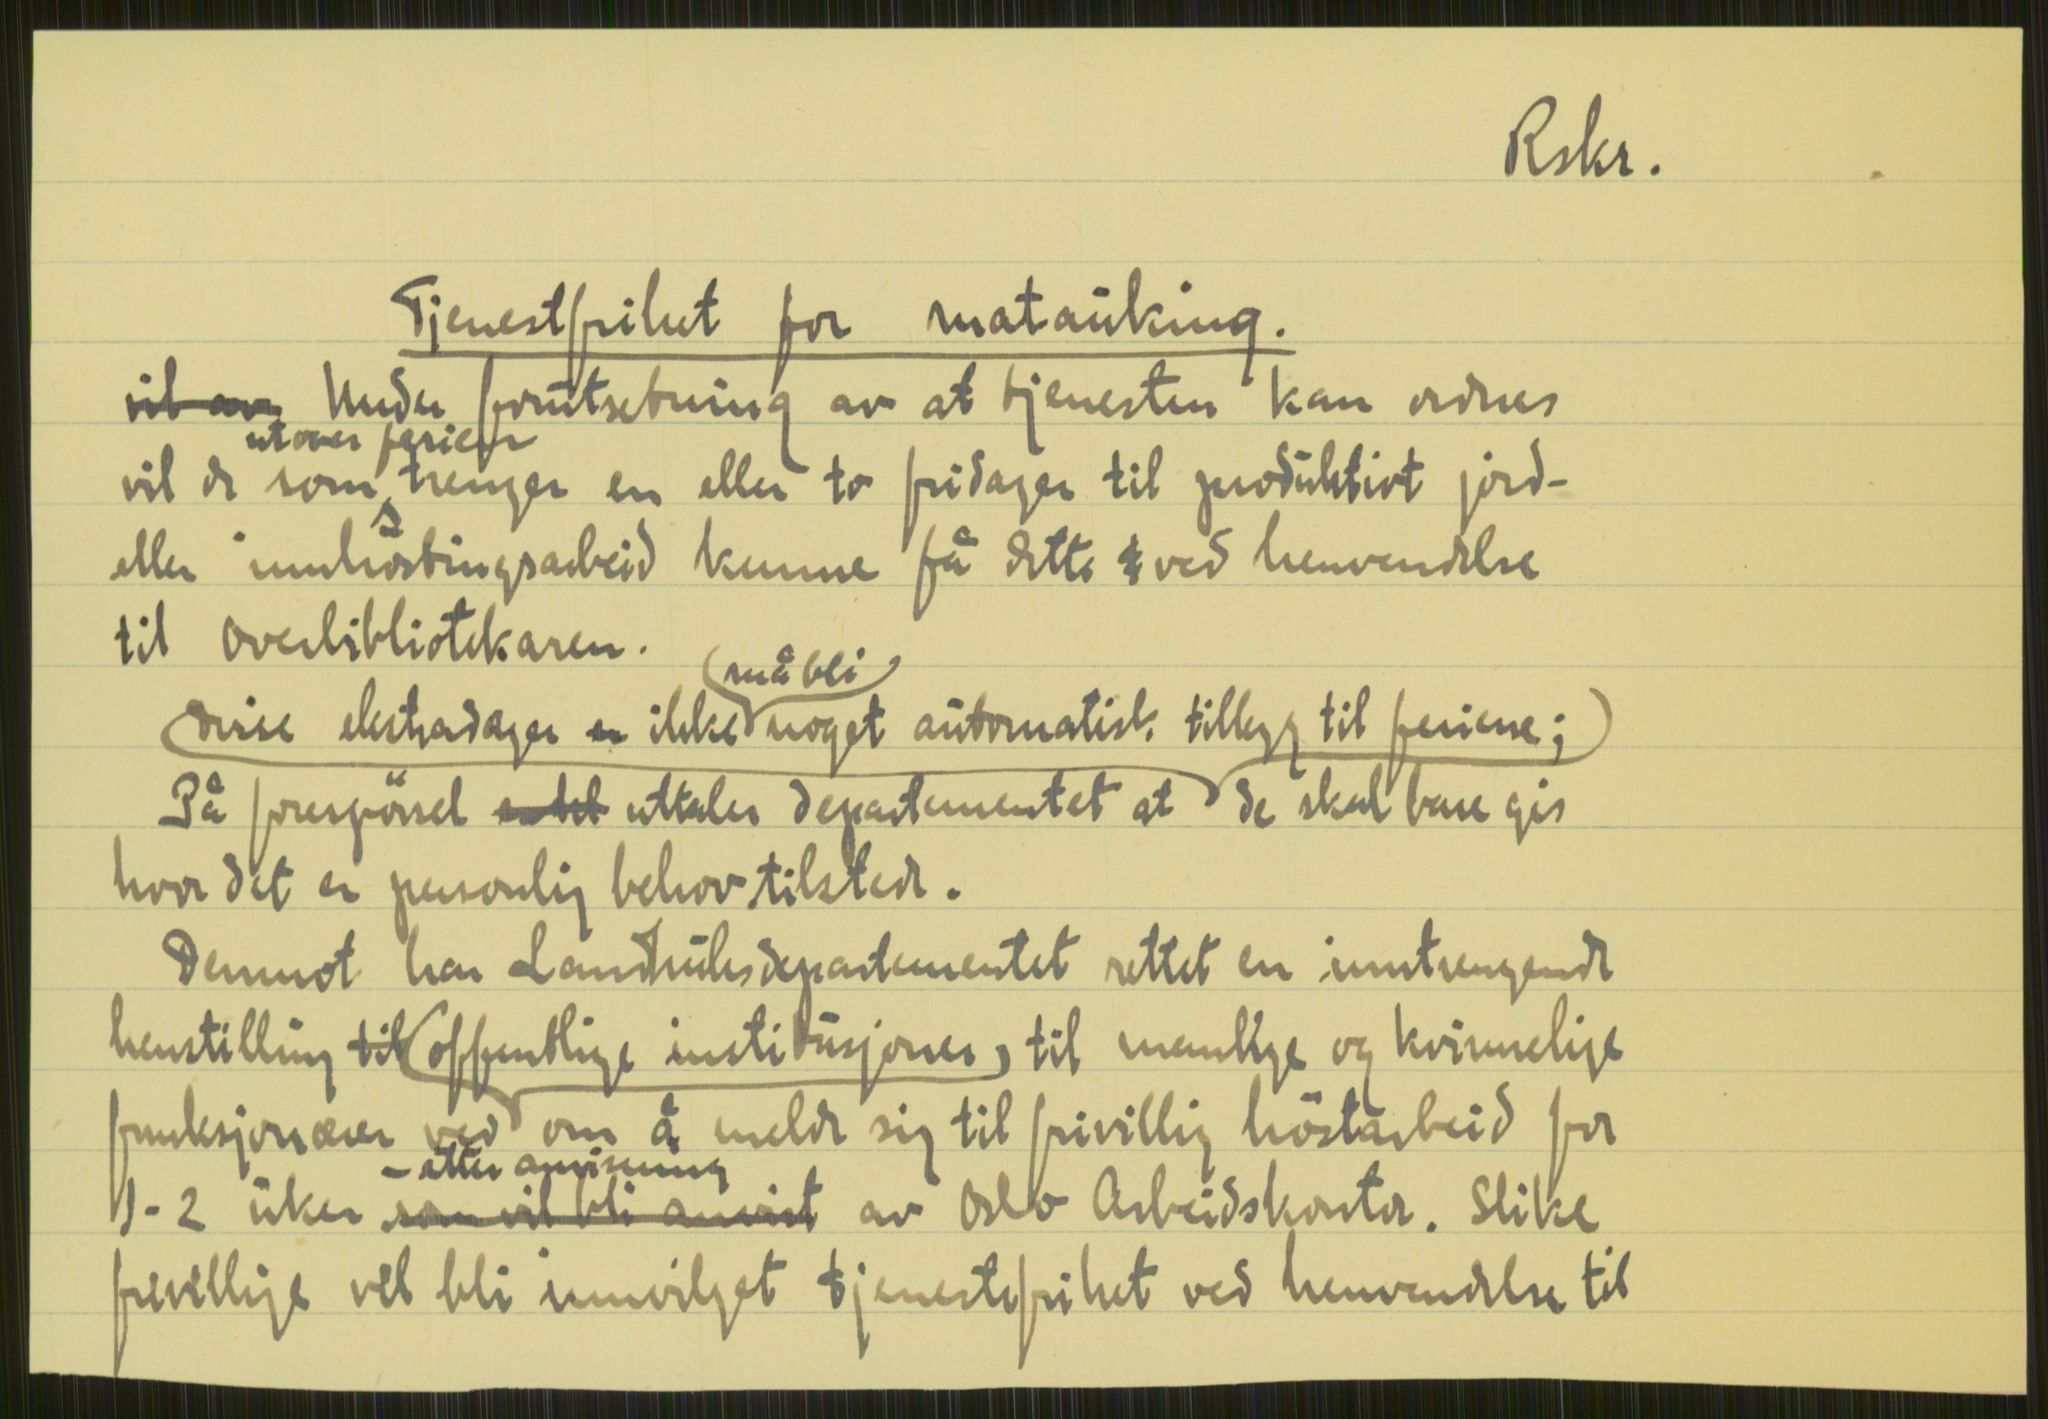 Rskr.
Tjenestfrihet for matauking.
vil av Under forutsetning av at tjenesten kan ordnes
utover ferien
vil de som trenger en eller to fridager til produktivt jord-
eller innhöstingsarbeid kunne få dette t ved henvendelse
til Overbibliotekaren.
må bli
disse ekstradager er ikke noget automatisk tillegg til feriene;
På forespörsel er det uttaler departementet at de skal bare gis
hvor det er personlig behov tilstede.
Derimot har Landbruksdepartementet rettet en inntrengende
henstilling til offentlige institusjoner, til manlige og kvinnelige
funksjonærer ved om å melde sig til frivillig höstarbeid for
- etter anvisning
1-2 uker som vil bli anvist av Oslo Arbeidskontor. Slike
frivillige vil bli innvilget tjenestefrihet ved henvendelse til